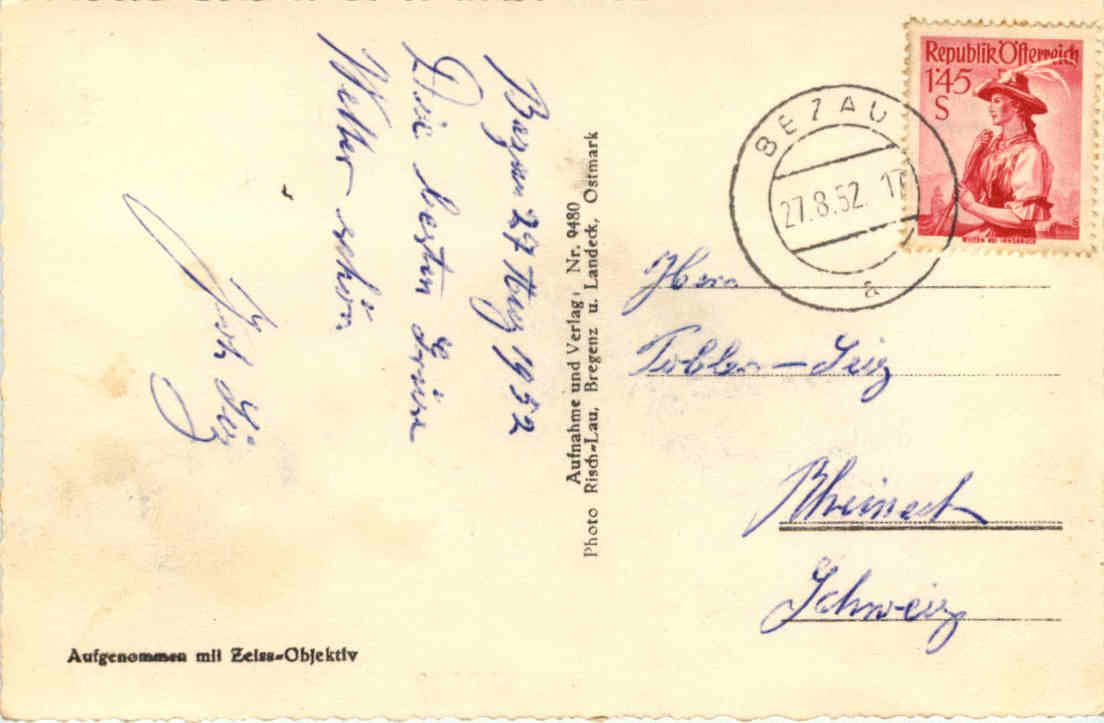 27 Aug 1952
Die besten Grüsse
Wetter schön
Aufgenommen mit Zeiss-Objektiv
Aufnahme und Verlag: Nr. 9480
Photo Risch-Lau, Bregenz u. Landeck, Ostmark
Republik Österreich
1'45
S
WILTEN BEI INNSBRUCK
BEZAU
27.8.52. 17
a
Herrn
Tobler-
Rheineck
Schweiz